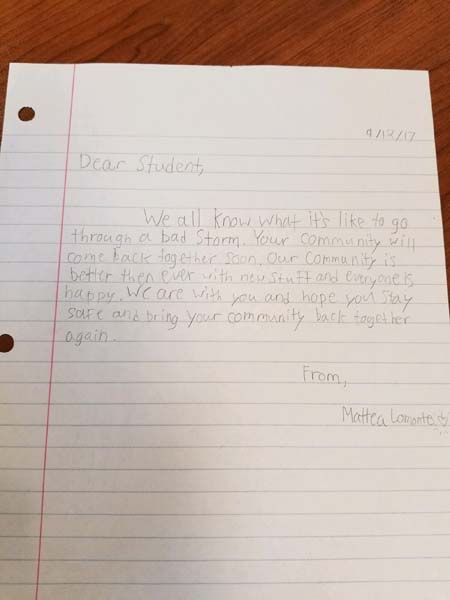 9/13/17
Dear Student,
We all know what it's like to go
through a bad Storm. Your community will
come back together soon. Our Community is
better then ever with new stuff and everyone is
happy. We are with you and hope you stay
safe and bring your community back together
again.
From,
Mattea Lomonte